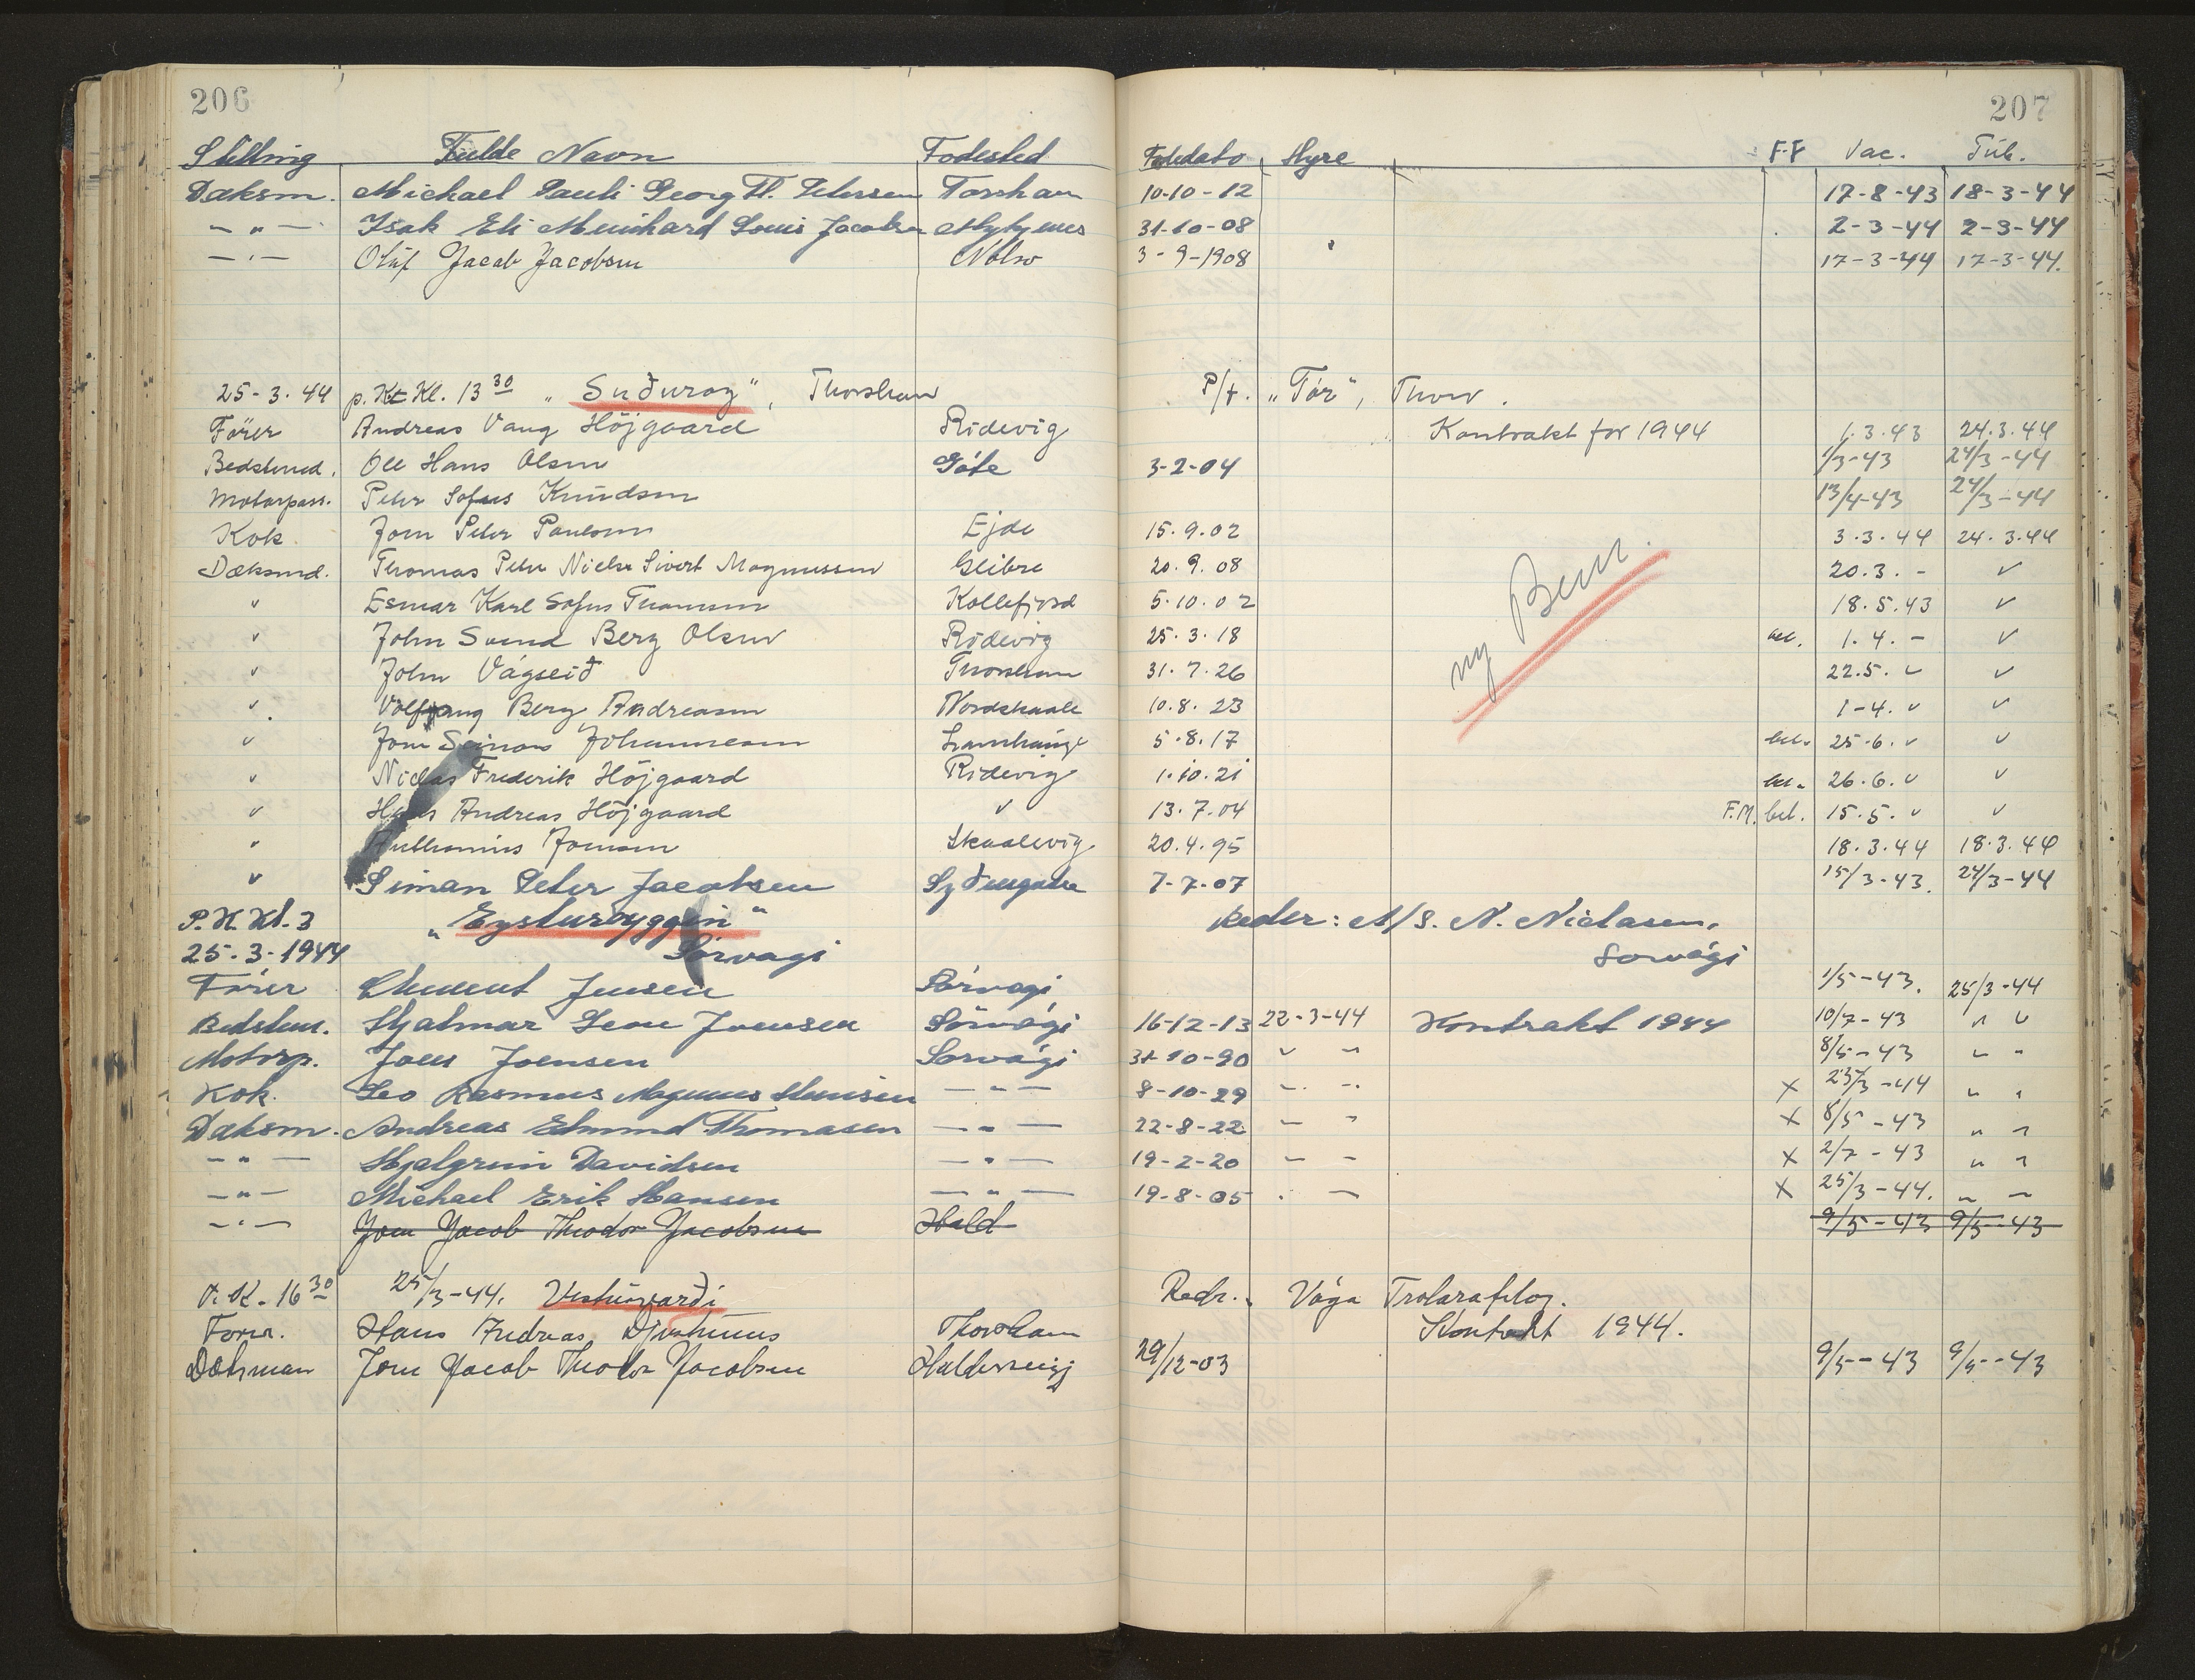 206
207
Stilling Fulde Navn Fødested Fødedato Hyre F.F Vac. Tub.
Dæksm. Michael Pauli Georg Fl. Petersen Torshavn 10-10-12 17-8-43 18-3-44
— " — Isak Eli Meinhard Louis Jacobsen Mykjenes 31-10-08 2-3-44 2-3-44
— " — Oluf Jacob Jacobsen Nolsø 3-9-1908 17-3-44 17-3-44.
25-3-44 p. Kt Kl. 13 30 „Suðuroy", Thorshavn P/f. „Tór", Thorv.
Förer Andreas Vang Höjgaard Ridevig Kontrakt for 1944 1.3.43 24.3.44
Bedstmd. Ole Hans Olsen Göte 3-2-04 1/3-43 24/3-44
Motorpass. Peter Sofus Knudsen 13/4-43 24/3-44
Kok Joen Peter Poulsen Ejde 15.9.02 3.3.44 24.3.44
Dæksmd. Thomas Peter Niclas Sivert Magnussen Glibre 20.9.08 20.3. - ✓
" Esmar Karl Sofus Thomsen Kollefjord 5.10.02 18.5.43 ✓
" John Svend Berg Olsen Ridevig 25.3.18 bet. 1.4. - ✓
" John Vágseið Thorshavn 31.7.26 22.5. " ✓
" Volfgang Berg Andreasen Nordskaale 10.8.23 1-4. " ✓
" Joen Simon Johannesen Lamhauge 5.8.17 bet. 25.6. " ✓
" Niclas Frederik Höjgaard Ridevig 1.10.21 bet. 26.6. " ✓
" Hans Andreas Höjgaard " 13.7.04 F.M. bet. 15.5. " ✓
" Joensen Skaalevig 20.4.95 18.3.44 18.3.44
" Siman Peter Jacobsen Syðrugøta 7-7-07 15/3-43. 24/3-44
ny Bem.
P.K. Kl. 3 „Eysturoyggin" Reder: A/S. N. Niclasen,
25-3-1944 Sörvagi Sorvági
Förer Clement Jensen Sörvagi 1/5-43. 25/3-44
Bedstem. Hjalmar Leon Joensen Sörvági 16-12-13 22-3-44 Kontrakt 1944 10/7-43 " "
Motorp. Joen Joensen Sorvági 31-10-90 " " 8/5-43 " "
Kok. Leo Rasmus Magnus Hansen — " — 8-10-29 " " X 23/3-44 " "
Dæksm. Andreas Edmund Thomasen — " — 22-8-22 " " X 8/5-43 " "
— " — Hjalgrim Davidsen — " — 19-2-20 " " X 2/7-43 " "
— " — Michael Erik Hansen — " — 19-8-05 " " X 25/3-44. " "
— " — Joen Jacob Theodor Jacobsen Hald 9/5-43 9/5-43
P.K. 16 30 25/3-44. Vesturvarði Redr. Vága Trolarafelag.
Forer. Hans Andreas Djurhuus Thorshavn Kontrakt 1944.
Dæksman Joen Jacob Theodor Jacobsen Haldersvigj 29/12-03 9/5-43 9/5-43